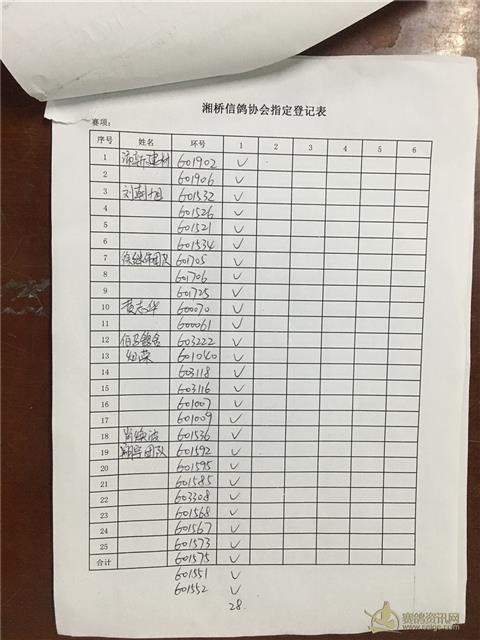 湘桥信鸽协会指定登记表
赛项：
序号 姓名 环号 1 2 3 4 5 6
1 建材 601902 ✓
2 601906 ✓
3 刘 601532 ✓
4 601526 ✓
5 601521 ✓
6 601534 ✓
7 团队 601705 ✓
8 601706 ✓
9 601725 ✓
10 黄志华 600070 ✓
11 600061 ✓
12 伯马鸽舍 603222 ✓
13 601040 ✓
14 603118 ✓
15 603116 ✓
16 601007 ✓
17 601009 ✓
18 肖焕波 601536 ✓
19 翔宇团队 601592 ✓
20 601595 ✓
21 601585 ✓
22 603308 ✓
23 601568 ✓
24 601567 ✓
25 601573 ✓
合计 601575 ✓
601551 ✓
601552 ✓
28.
赛鸽资讯网